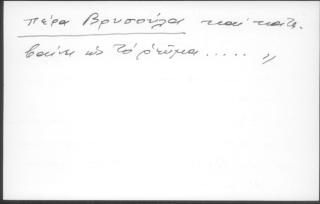 πέρα Βρυσούλα και κατε-
βαίνει ως το ρέυμα..... »